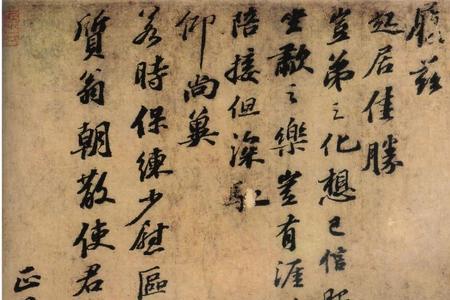 履茲
起居佳勝
豈弟之化想已信
坐歗之樂豈有涯
陪接但深馳
仰尚冀
若時保練少慰區
質翁朝散使君
正